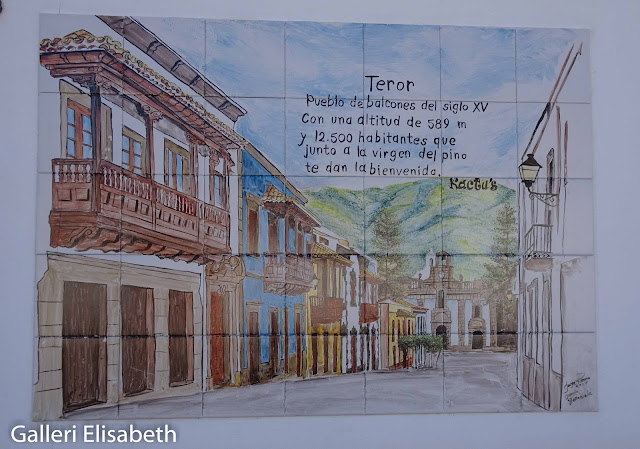 Teror
Pueblo de balcones del siglo XV
Con una altitud de 589 m
y 12.500 habitantes que
junto a la virgen del pino
te dan la bienvenida.
Kactu's
Galleri Elisabeth